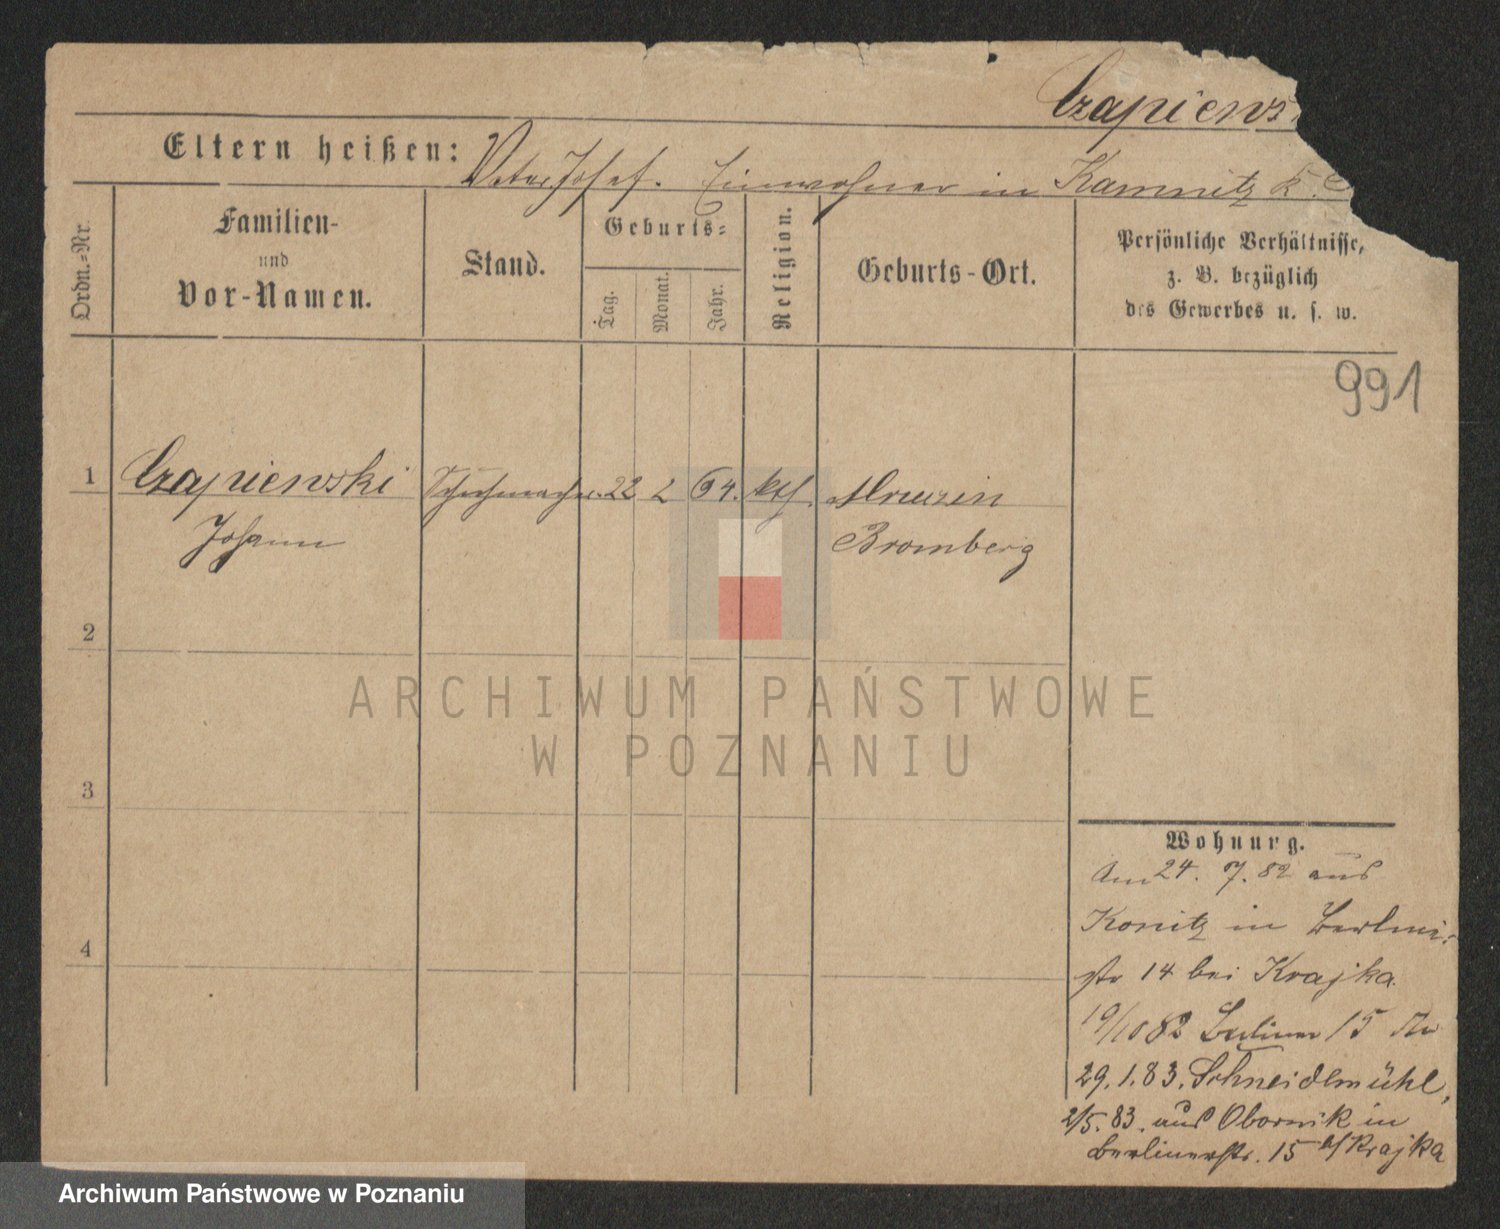 Czapiews
Eltern heißen: Vater Josef. Einwohner in Kamnitz
Ordn.=Nr.
Familien-
und
Vor-Namen.
Stand.
Geburts=
Tag.
Monat.
Jahr.
Religion.
Geburts-Ort.
Persönliche Verhältnisse,
z. B. bezüglich
des Gewerbes u. s. w.
991
1 Czapiewski Schuhmacher. 22 2 64. kth.
Johann Bromberg
2
3
4
Wohnung.
Am 24. 7. 82 aus
Konitz in Berliner
str 14 bei Krajka.
19/10 82 Berliner 15
29. 1. 83. Schneidemühl,
2/5. 83. aus Obornik in
Berlinerstr. 15 b/Krajka
ARCHIWUM PAŃSTWOWE
W POZNANIU
Archiwum Państwowe w Poznaniu